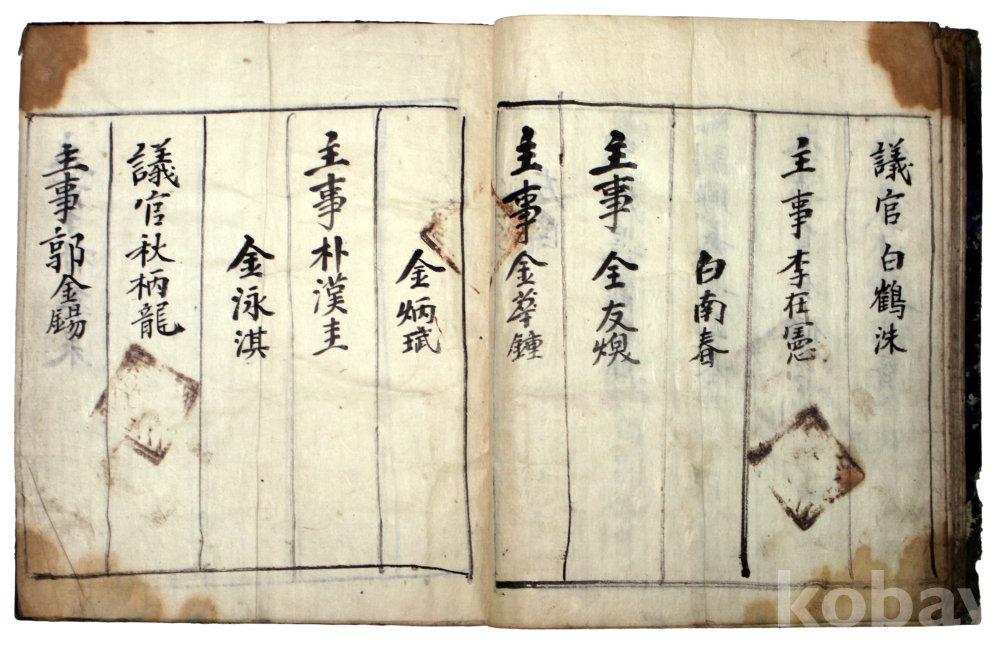 議官 白鶴洙
主事 李在憲
白南春
主事 全友煥
主事 金華鍾
金炳珷
主事 朴漢圭
金泳淇
議官 秋柄龍
主事 郭金錫
kobay